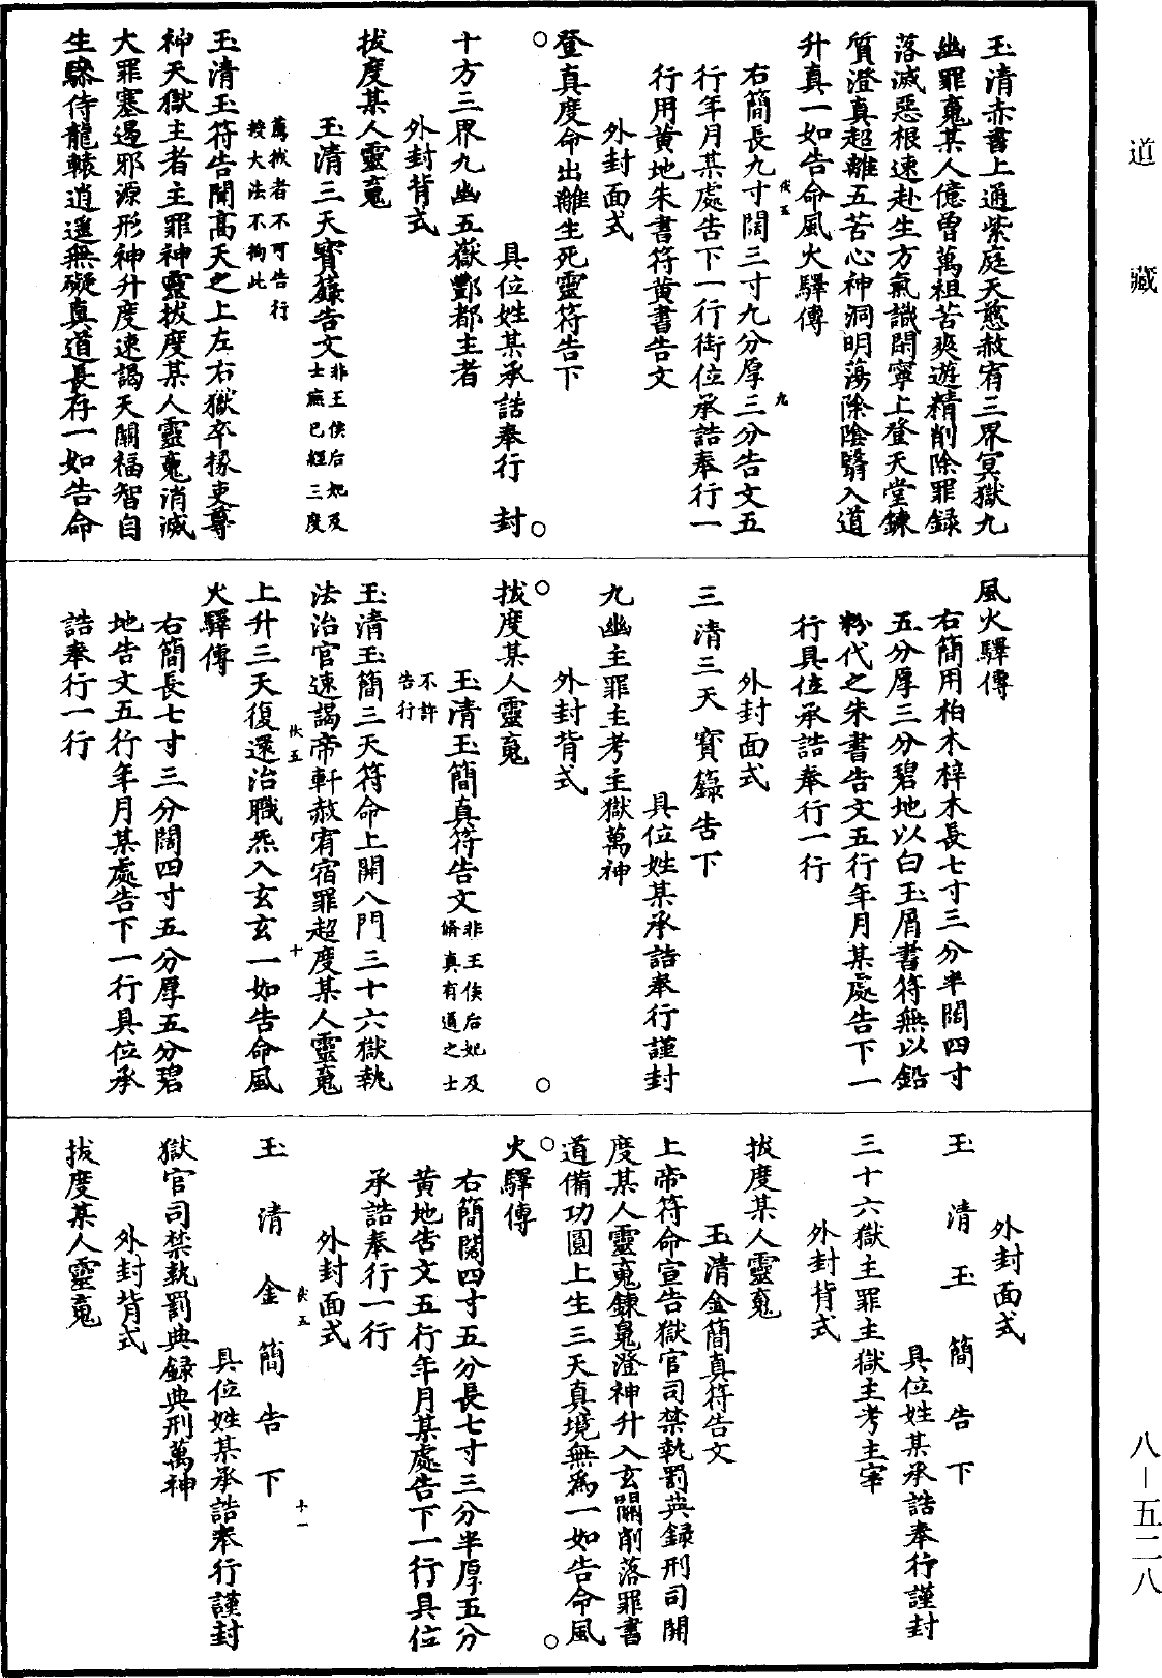 道藏
玉清赤書上通紫庭天慈赦宥三界冥獄九
幽罪䰟某人億曾萬祖苦爽遊精削除罪録
落滅惡根速赴生方氣識開寧上登天堂鍊
質澄真超離五苦心神洞明蕩除陰翳入道
升真一如告命風火驛傳
右簡長九寸闊三寸九分厚三分告文五
行年月某處告下一行銜位承誥奉行一
行用黄地朱書符黄書告文
外封面式
登真度命出離生死靈符告下
具位姓某承誥奉行 封
十方三界九幽五嶽酆都主者
外封背式
拔度某人靈䰟
玉清三天寳籙告文非王侯后妃及
士庶已經三度
薦拔者不可告行
授大法不拘此
玉清玉符告開高天之上左右獄卒掾吏尊
神天獄主者主罪神靈拔度某人靈䰟消滅
大罪塞遏邪源形神升度速謁天關福智自
生驂侍龍轅逍遥無礙真道長存一如告命
風火驛傳
右簡用柏木梓木長七寸三分半闊四寸
五分厚三分碧地以白玉屑書符無以鉛
粉代之朱書告文五行年月某處告下一
行具位承誥奉行一行
外封面式
三清三天寳籙告下
具位姓某承誥奉行謹封
九幽主罪主考主獄萬神
外封背式
拔度某人靈䰟
玉清玉簡真符告文非王侯后妃及
脩真有道之士
不許
告行
玉清玉簡三天符命上開八門三十六獄執
法治官速謁帝軒赦宥宿罪超度某人靈䰟
上升三天復還治職炁入玄玄一如告命風
火驛傳
右簡長七寸三分闊四寸五分厚五分碧
地告文五行年月某處告下一行具位承
誥奉行一行
外封面式
玉清玉簡告下
具位姓某承誥奉行謹封
三十六獄主罪主獄主考主宰
外封背式
拔度某人靈䰟
玉清金簡真符告文
上帝符命宣告獄官司禁執罰典録刑司開
度某人靈䰟鍊䰟澄神升入玄關削落罪書
道備功圓上生三天真境無爲一如告命風
火驛傳
右簡闊四寸五分長七寸三分半厚五分
黄地告文五行年月某處告下一行具位
承誥奉行一行
外封面式
玉清金簡告下
具位姓某承誥奉行謹封
獄官司禁執罰典録典刑萬神
外封背式
拔度某人靈䰟
八－五二八